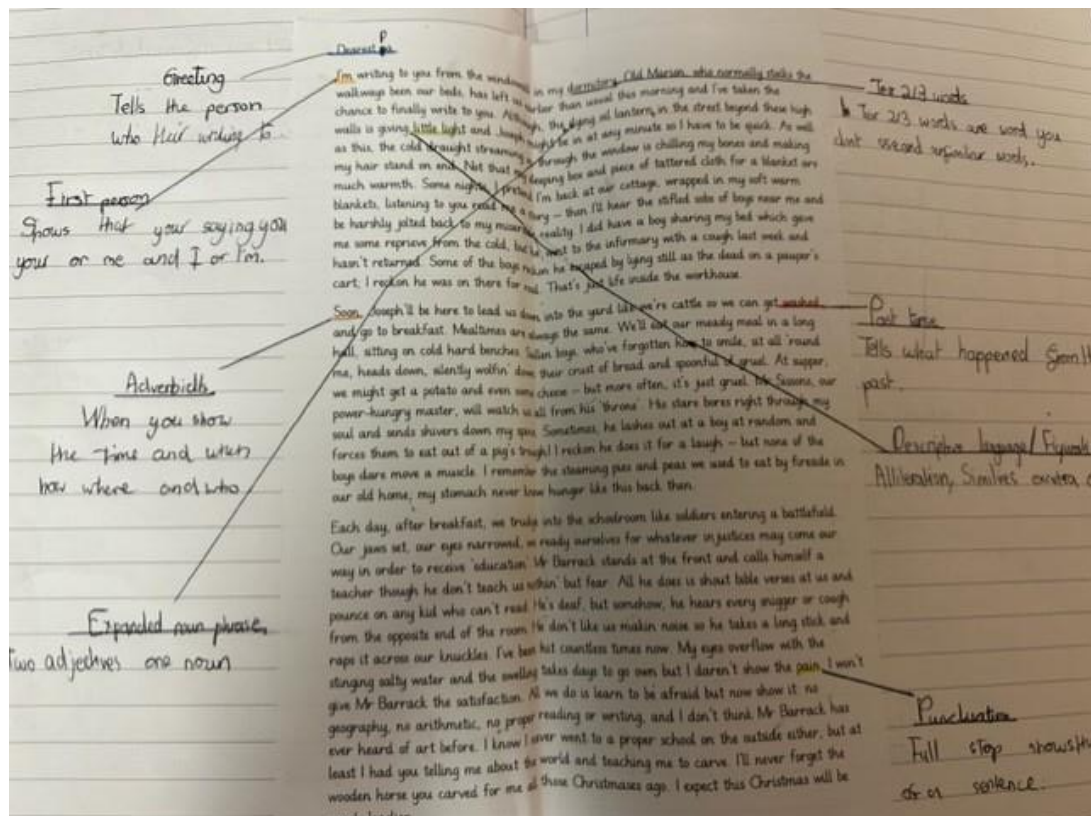 Greeting
Tells the person
who writing to
First person
Shows that your saying you
your or me and I or I'm.
Adverbials
When you show
the time and when
how where and who
Expanded noun phrase
Two adjectives one noun
P
Dearest
I'm writing to you from the window in my dormitory. Old Marian, who normally stalks the
walkways been our beds, has left us earlier than usual this morning and I've taken the
chance to finally write to you. Although, the dying oil lantern, in the street beyond these high
walls is giving little light and Joseph might be in at any minute so I have to be quick. As well
as this, the cold draught streaming through the window is chilling my bones and making
my hair stand on end. Not that my sleeping box and piece of tattered cloth for a blanket are
much warmth. Some nights, I pretend I'm back at our cottage, wrapped in my soft warm
blankets, listening to you read me a story – than I'll hear the stifled sobs of boys near me and
be harshly jolted back to my miserable reality. I did have a boy sharing my bed which gave
me some reprieve from the cold, but he went to the infirmary with a cough last week and
hasn't returned. Some of the boys reckon he escaped by lying still as the dead on a pauper's
cart, I reckon he was on there for real. That's just life inside the workhouse.
Soon, Joseph'll be here to lead us down into the yard like we're cattle so we can get washed
and go to breakfast. Mealtimes are always the same. We'll eat our meady meal in a long
hall, sitting on cold hard benches. Sullen boys, who've forgotten how to smile, sit all 'round
me, heads down, silently wolfin' down their crust of bread and spoonful of gruel. At supper,
we might get a potato and even some cheese – but more often, it's just gruel. Mr Sissons, our
power-hungry master, will watch us all from his 'throne'. His stare bores right through my
soul and sends shivers down my spine. Sometimes, he lashes out at a boy at random and
forces them to eat out of a pig's trough! I reckon he does it for a laugh – but none of the
boys dare move a muscle. I remember the steaming pies and peas we used to eat by fireside in
our old home, my stomach never knew hunger like this back then.
Each day, after breakfast, we trudge into the schoolroom like soldiers entering a battlefield.
Our jaws set, our eyes narrowed, we ready ourselves for whatever injustices may come our
way in order to receive 'education'. Mr Barrack stands at the front and calls himself a
teacher though he don't teach us nothin' but fear. All he does is shout bible verses at us and
pounce on any kid who can't read. He's deaf, but somehow, he hears every snigger or cough
from the opposite end of the room. He don't like us makin noise so he takes a long stick and
raps it across our knuckles. I've been hit countless times now. My eyes overflow with the
stinging salty water and the swelling takes days to go own but I daren't show the pain. I won't
give Mr Barrack the satisfaction. All we do is learn to be afraid but now show it: no
geography, no arithmetic, no proper reading or writing, and I don't think Mr Barrack has
ever heard of art before. I know I never went to a proper school on the outside either, but at
least I had you telling me about the world and teaching me to carve. I'll never forget the
wooden horse you carved for me all those Christmases ago. I expect this Christmas will be
Tier 2/3 words
Tier 2/3 words are word you
dont words.
Past tense
Tells what happened from the
past.
Descriptive language/
Alliteration, Similes
Punctuation
Full stop shows the
of a sentence.